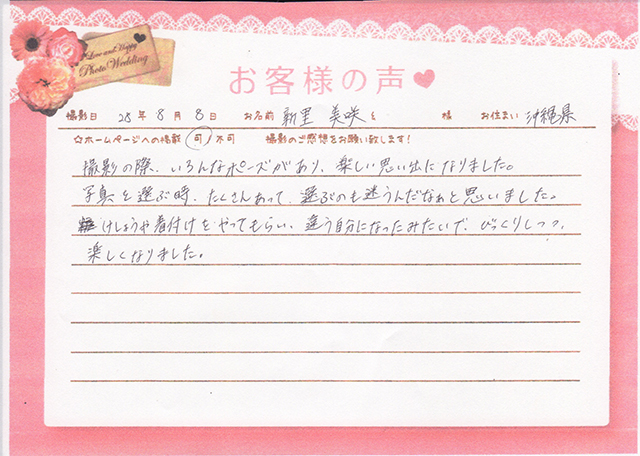 Love and Happy
Photo Wedding
お客様の声
撮影日 28年 8月 8日 お名前 新里 美咲 様 お住まい 沖縄県
☆ホームページへの掲載 可/不可 撮影のご感想をお願い致します!
撮影の際、いろんなポーズがあり、楽しい思い出になりました。
写真を選ぶ時、たくさんあって、選ぶのも迷うんだなぁと思いました。
けしょうや着付けをやってもらい、違う自分になったみたいで、びっくりしつつ、
楽しくなりました。